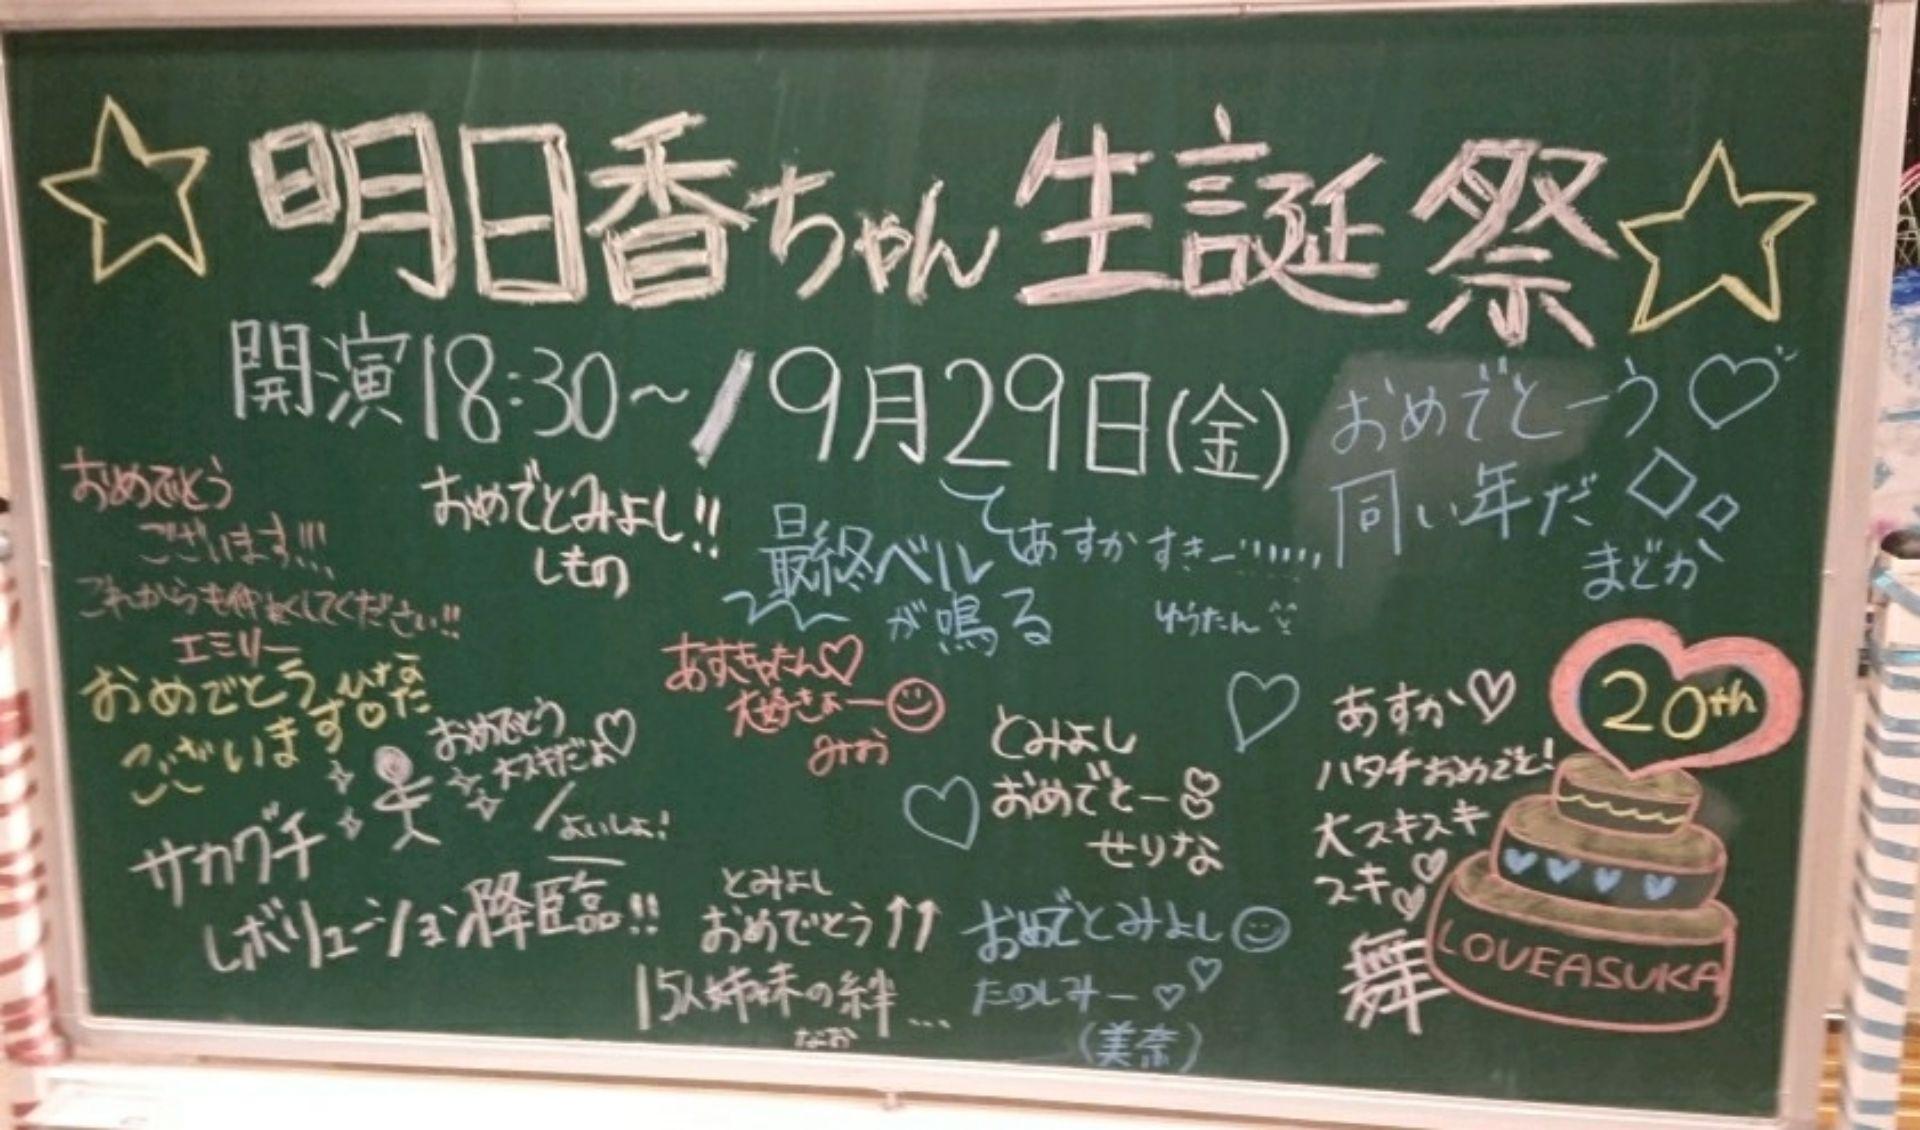 明日香ちゃん生誕祭
開演18:30~/9月29日(金)
おめでとーう
同い年だ
まどか
おめでとう
ございます!!!
これからも仲良くしてください!!
エミリー
おめでとみよし!!
しもの
最終ベル
が鳴る
あすかすきー
ゆうたん
おめでとう
ございます
ひなた
おめでとう
大スキだよ
よいしょ!
サカグチ
レボリューション降臨!!
あすきゃたん
大好きよー
みお
とみよし
おめでとー
せりな
とみよし
おめでとう↑↑
15人姉妹の絆...
なお
おめでとみよし
たのしみー
(美奈)
あすか
ハタチおめでと!
大スキスキ
スキ
舞
20th
LOVEASUKA